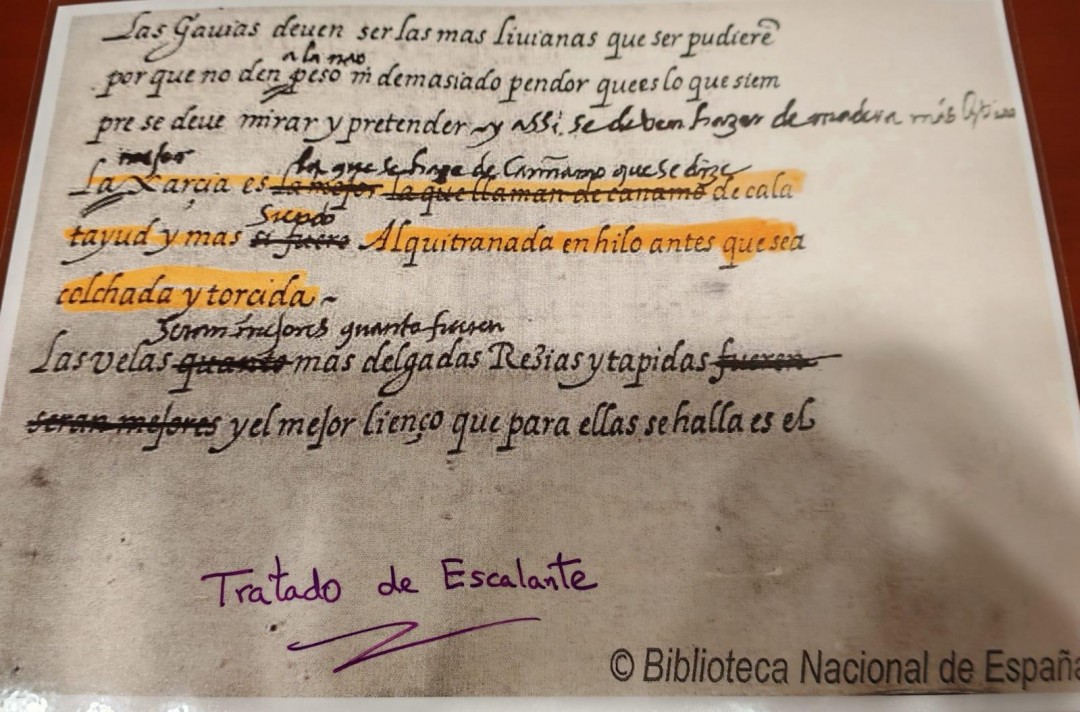 Las Gauias deuen ser las mas liuianas que ser pudierẽ
a la nao
por que no den peso ni demasiado pendor que es lo que siem
pre se deue mirar y pretender y assi se deben hazer de madera más
mejor
la que se haze de Cañamo que se dize
La Xarçia es la mejor la que llaman de cañamo de cala
Siendo
tayud y mas si fuere Alquitranada en hilo antes que sea
colchada y torcida
Seran mejores quanto fueren
Las velas quanto mas delgadas Rezias y tapidas fueren
seran mejores y el mejor lienço que para ellas se halla es el
Tratado de Escalante
© Biblioteca Nacional de España